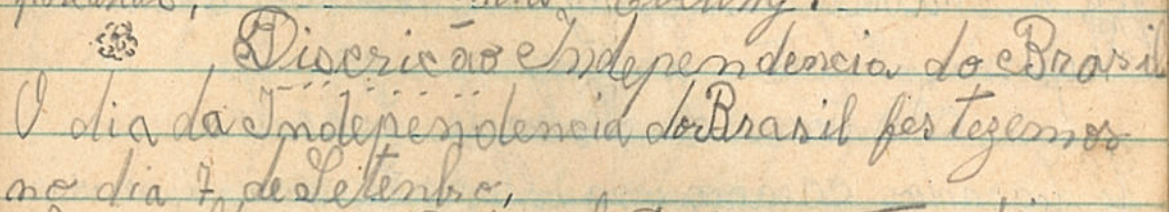 Discrição Independencia do Brasil
O dia da Independencia do Brasil festegemos
no dia 7 de Setenbro,